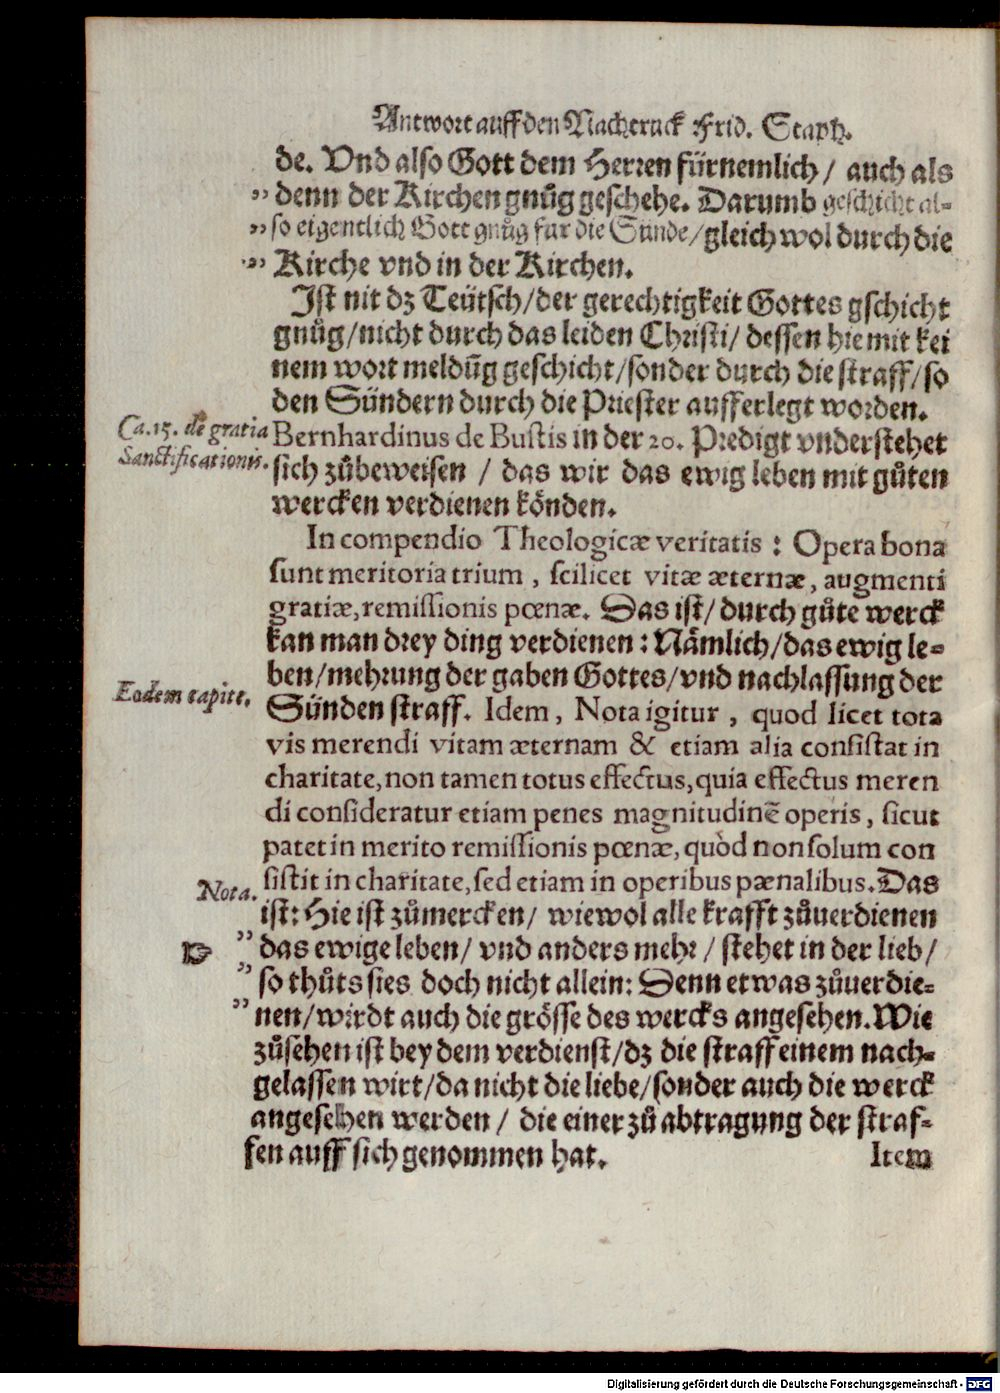 Antwort auff den Nachtruck Frid. Staph.
de. Vnd also Gott dem Herren fürnemlich / auch als
„ denn der Kirchen gnůg geschehe. Darumb geschicht al-
„ so eigentlich Gott gnůg für die Sünde/gleich wol durch die
„ Kirche vnd in der Kirchen.
Jst nit dz Teütsch/der gerechtigkeit Gottes gschicht
gnůg/nicht durch das leiden Christi/ dessen hie mit kei
nem wort meldūg geschicht/sonder durch die straff/so
den Sündern durch die Priester aufferlegt worden.
Ca.15. de gratia
Sanctificationis.
Bernhardinus de Bustis in der 20. Predigt vnderstehet
sich zůbeweisen / das wir das ewig leben mit gůten
wercken verdienen könden.
In compendio Theologicæ veritatis : Opera bona
sunt meritoria trium , scilicet vitæ æternæ , augmenti
gratiæ, remissionis pœnæ. Das ist/ durch gůte werck
kan man drey ding verdienen : Nämlich/das ewig le-
ben/mehrung der gaben Gottes/vnd nachlassung der
Eodem capite.
Sünden straff. Idem , Nota igitur , quod licet tota
vis merendi vitam æternam & etiam alia consistat in
charitate, non tamen totus effectus, quia effectus meren
di consideratur etiam penes magnitudinē operis , sicut
patet in merito remissionis pœnæ, quòd non solum con
Nota.
sistit in charitate, sed etiam in operibus pænalibus. Das
ist: Hie ist zůmercken/ wiewol alle krafft zůuerdienen
„ das ewige leben/ vnd anders mehr / stehet in der lieb/
„ so thůts sies doch nicht allein: Denn etwas zůuerdie-
„ nen/wirdt auch die grösse des wercks angesehen. Wie
zůsehen ist bey dem verdienst/dz die straff einem nach-
gelassen wirt/da nicht die liebe/sonder auch die werck
angesehen werden / die einer zů abtragung der straf-
fen auff sich genommen hat.
Item
Digitalisierung gefördert durch die Deutsche Forschungsgemeinschaft - DFG